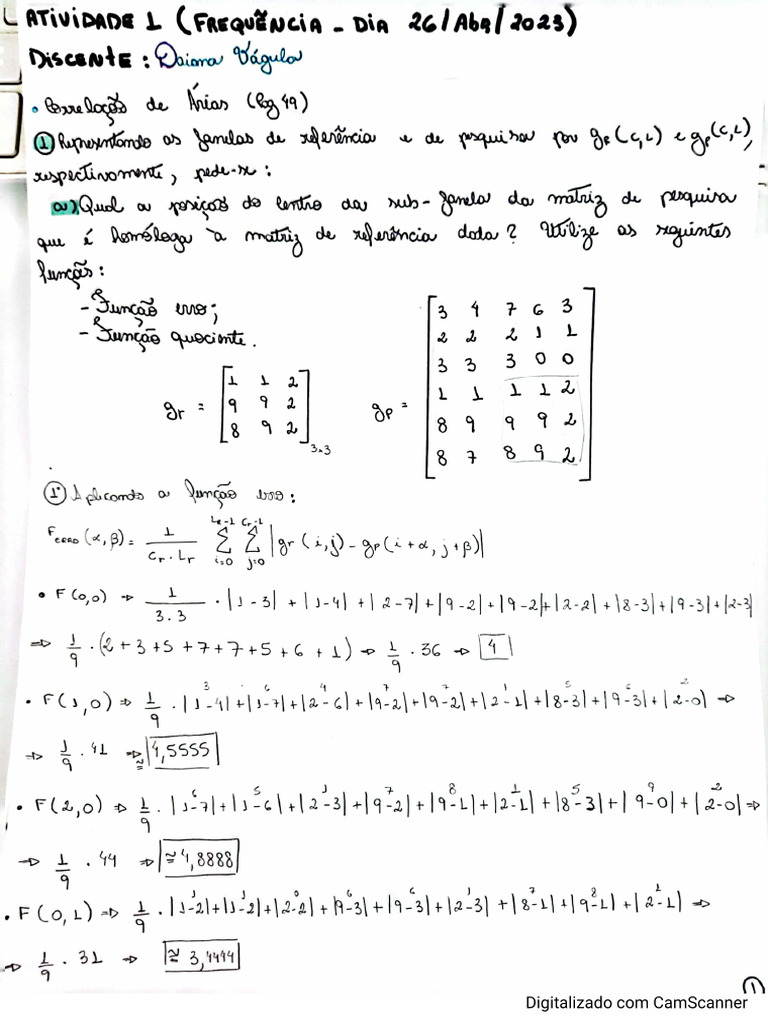 ATIVIDADE 1 (FREQUÊNCIA - DIA 26/Abr/2023)
DISCENTE: Daiana Vágula
• Correlação de Árias (pg 49)
① Representando as janelas de referência e de pesquisa por gr(C,L) e gp(C,L),
respectivamente, pede-se:
a) Qual a posição do centro da sub-janela da matriz de pesquisa
que é homóloga à matriz de referência dada? Utilize as seguintes
funções:
- Função erro;
- Função quociente.
gr = [1 1 2
9 9 2
8 9 2] 3x3
gp = [3 4 7 6 3
2 2 2 1 1
3 3 3 0 0
1 1 1 1 2
8 9 9 9 2
8 7 8 9 2]
① Aplicando a função erro:
F ERRO (α,β) = 1/(Cr.Lr) Σ(i=0, Lr-1) Σ(j=0, Cr-1) |gr(i,j) - gp(i+α, j+β)|
• F(0,0) ⇒ 1/(3.3) . |1-3| + |1-4| + |2-7| + |9-2| + |9-2| + |2-2| + |8-3| + |9-3| + |2-3|
⇒ 1/9 . (2+3+5+7+7+5+6+1) ⇒ 1/9 . 36 ⇒ 4
• F(1,0) ⇒ 1/9 . |1-4| + |1-7| + |2-6| + |9-2| + |9-2| + |2-1| + |8-3| + |9-3| + |2-0| ⇒
3 6 4 7 7 1 5 6 2
⇒ 1/9 . 41 ⇒ ≅ 4,5555
• F(2,0) ⇒ 1/9 . |1-7| + |1-6| + |2-3| + |9-2| + |9-1| + |2-1| + |8-3| + |9-0| + |2-0| ⇒
6 5 1 7 8 1 5 9 2
⇒ 1/9 . 44 ⇒ ≅ 4,8888
• F(0,1) ⇒ 1/9 . |1-2| + |1-2| + |2-2| + |9-3| + |9-3| + |2-3| + |8-1| + |9-1| + |2-1| ⇒
1 1 0 6 6 1 7 8 1
⇒ 1/9 . 31 ⇒ ≅ 3,4444
①
Digitalizado com CamScanner